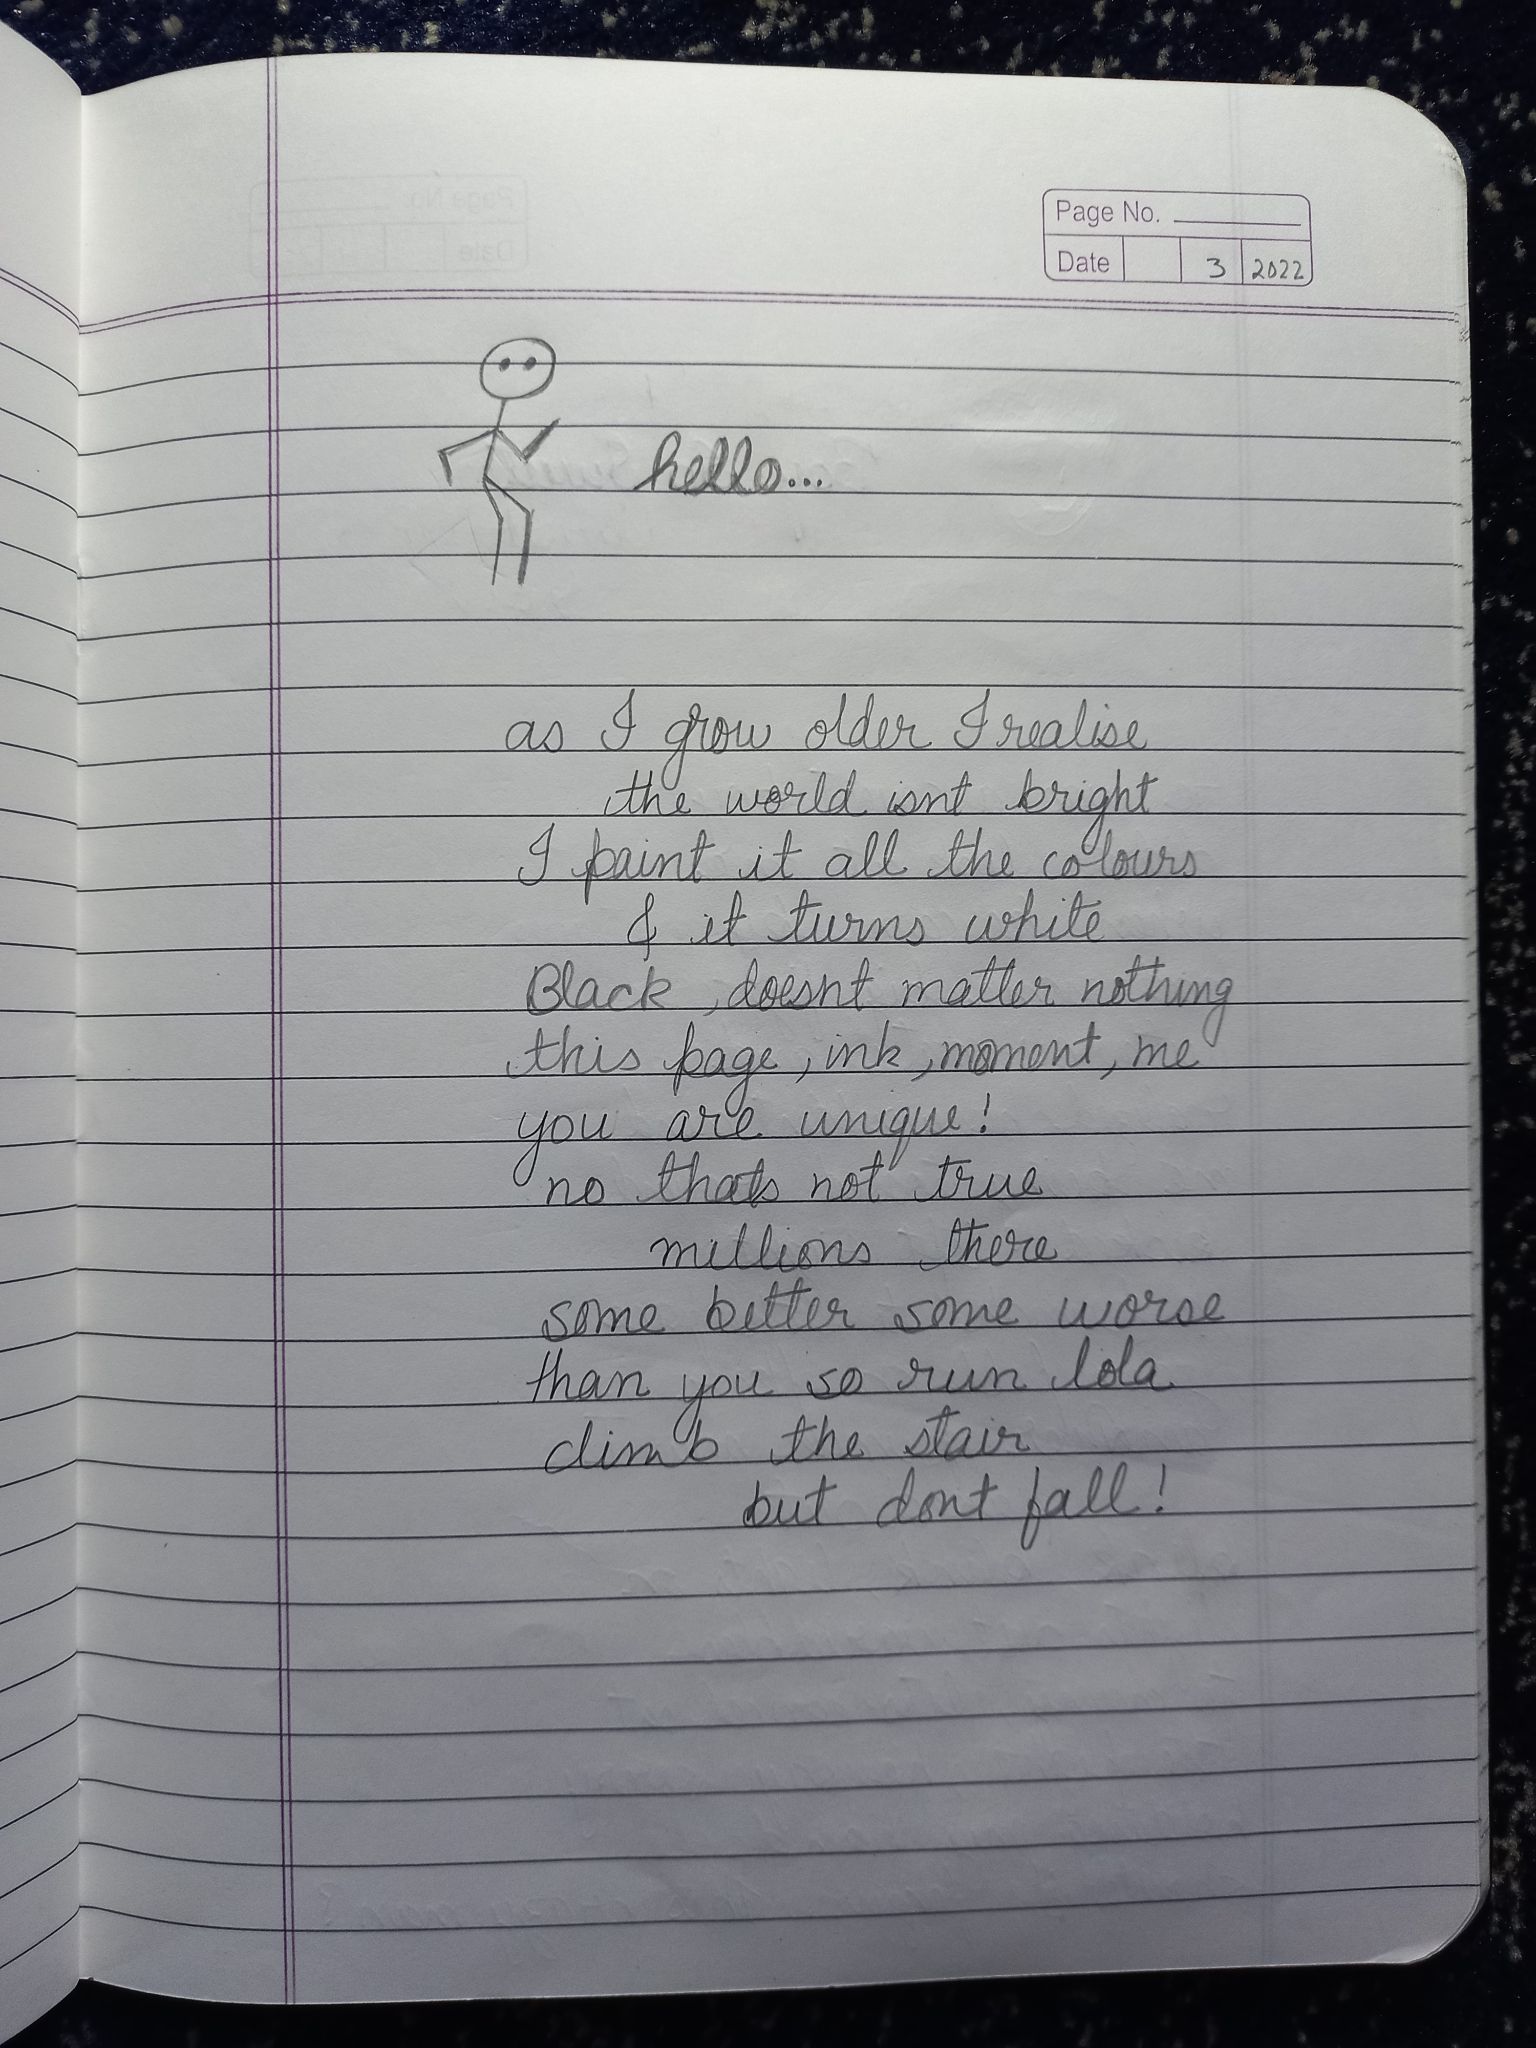 Page No.
Date 3 2022
hello...
as I grow older I realise
the world isnt bright
I paint it all the colours
& it turns white
Black, doesnt matter nothing
this page, ink, moment, me
you are unique!
no thats not true
millions there
some better some worse
than you so run lola
climb the stair
but dont fall!